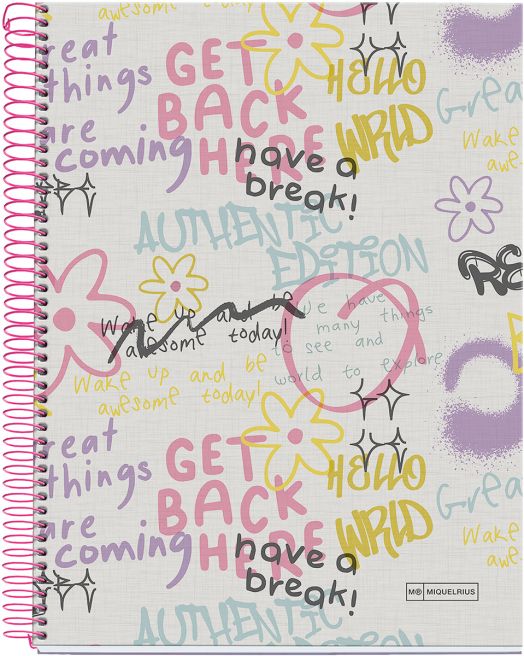 awesome today!
reat
things
are
coming
GET
BACK
HERE
HELLO
WRLD
Grea
Wake
awe
have a
break!
AUTHENTIC
EDITION
RE
Wake up and be
awesome today!
We have
many things
to see and
world to explore
Wake up and be
awesome today!
reat
things
are
coming
GET
BACK
HERE
HELLO
WRLD
Grea
Wake
awe
have a
break!
M® MIQUELRIUS
AUTHENTIC
EDITION